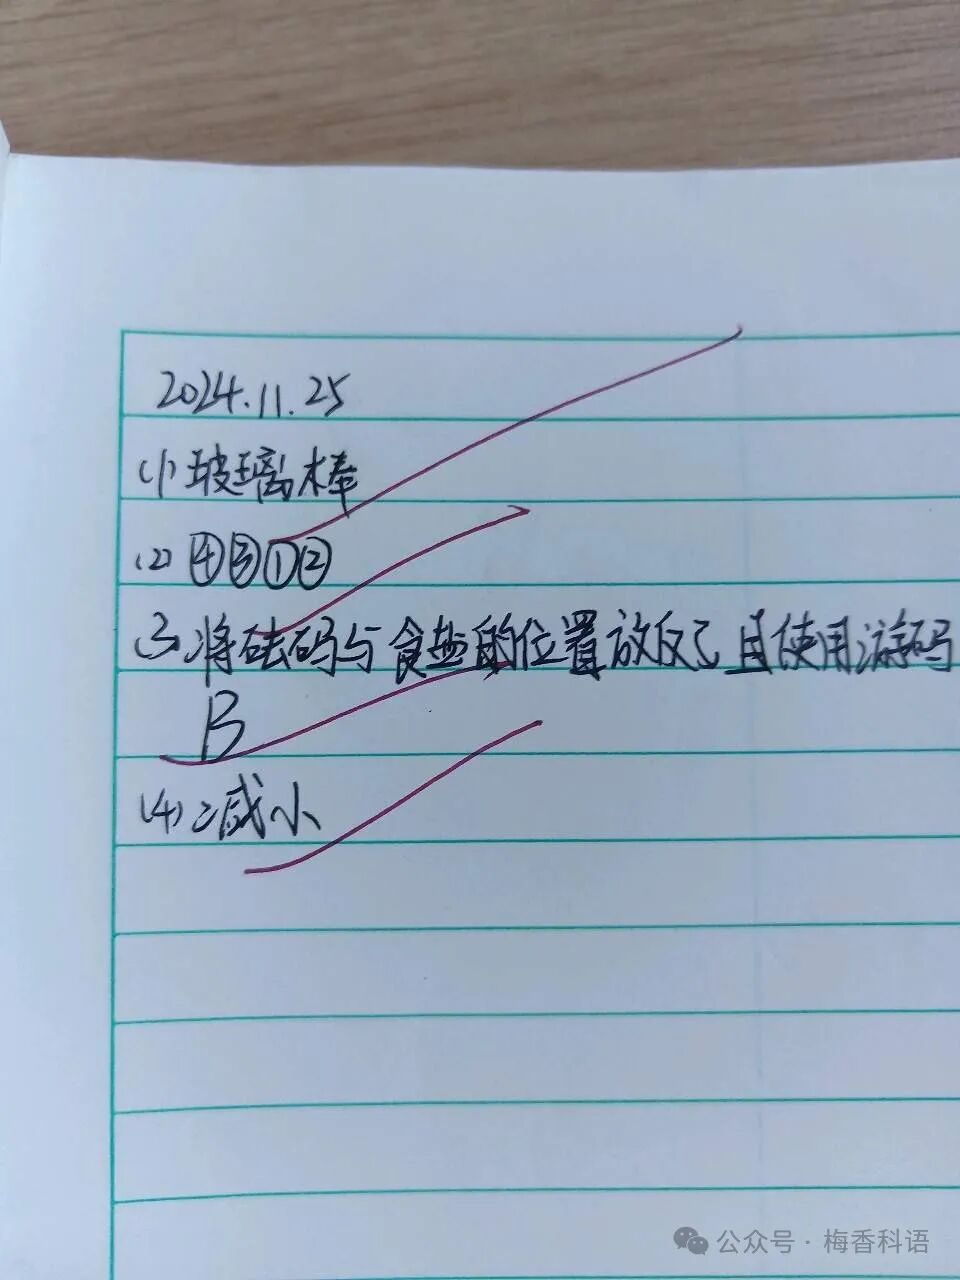 2024.11.25
(1) 玻璃棒
(2) ④③①②
(3) 将砝码与食盐的位置放反了且使用游码
B
(4) 减小
公众号·梅香科语